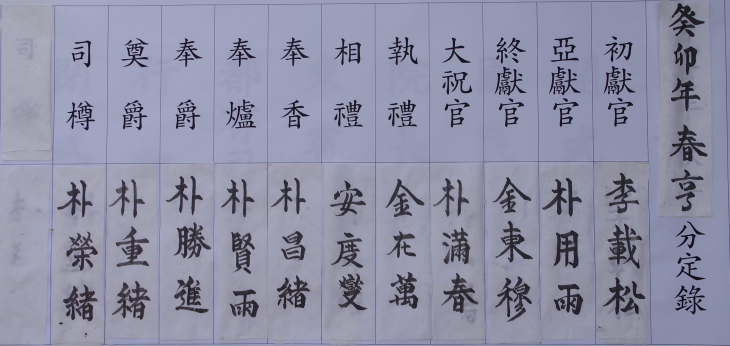 癸卯年 春亨 分定錄
初獻官 李載松
亞獻官 朴用雨
終獻官 金東穆
大祝官 朴滿春
執禮 金在萬
相禮 安度燮
奉香 朴昌緖
奉爐 朴賢雨
奉爵 朴勝進
奠爵 朴重緖
司樽 朴榮緖